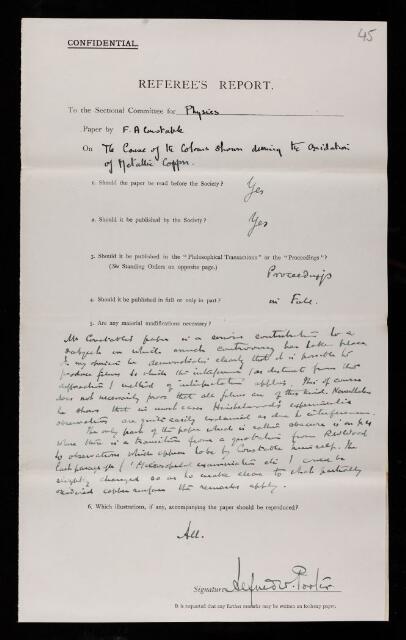 45
CONFIDENTIAL.
REFEREE'S REPORT.
To the Sectional Committee for Physics
Paper by F. A Constable
On The Cause of the Colours shown during the Oxidation
of Metallic Copper.
1. Should the paper be read before the Society? Yes
2. Should it be published by the Society? Yes
3. Should it be published in the "Philosophical Transactions" or the "Proceedings"?
(See Standing Orders on opposite page.)
Proceedings
4. Should it be published in full or only in part? in Full.
5. Are any material modifications necessary?
Mr Constable's paper is a serious contribution to a
subject on which much controversy has taken place.
In my opinion he demonstrates clearly that it is possible to
produce films to which the interference (as distinct from the
diffraction) method of interpretation applies. This of course
does not necessarily prove that all films are of this kind. Nevertheless
he shows that in most cases experimental
observations are quite easily explained as due to interference.
The only part of the paper which is rather obscure is on p 4
where there is a transition from a quotation from
to observations which appear to be by Constable himself. The
last paragraph ('Microscopical examination etc') could be
slightly changed so as to make clear to what partially
oxidised copper surface the remarks apply.
6. Which illustrations, if any, accompanying the paper should be reproduced?
All.
Signature Alfred W. Porter
It is requested that any further remarks may be written on foolscap paper.